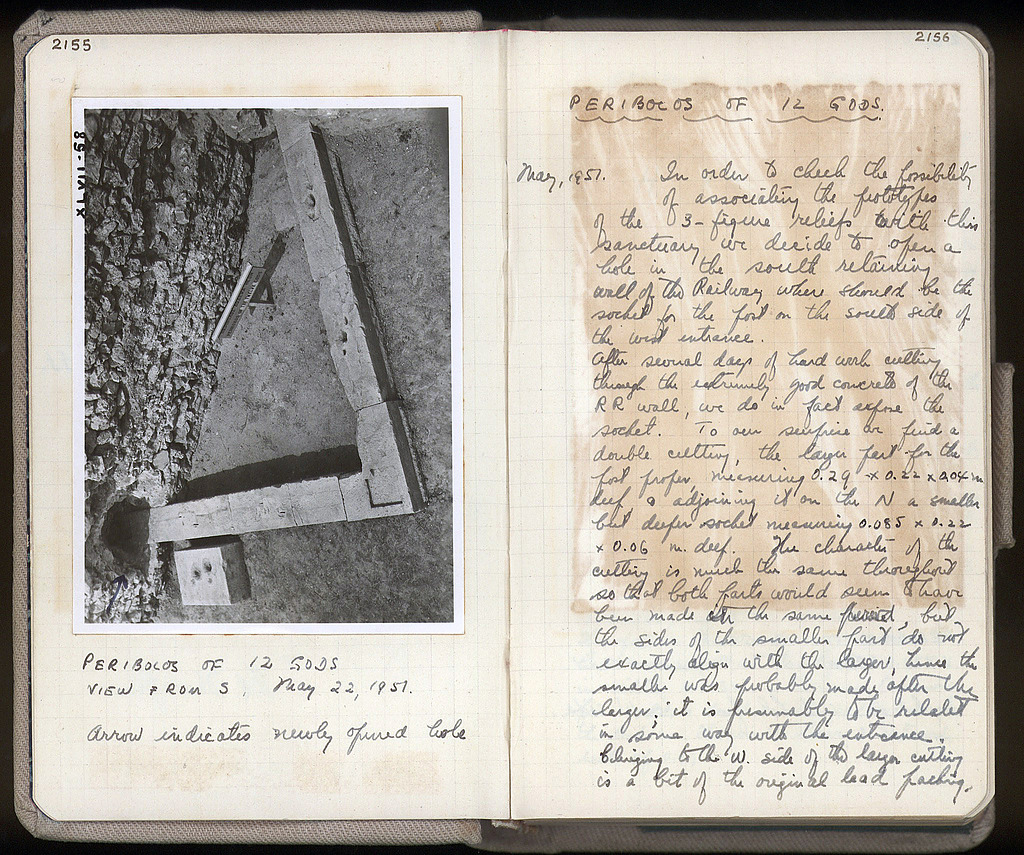 2155
XLVII-58
PERIBOLOS OF 12 GODS
VIEW FROM S. May 22, 1951.
Arrow indicates newly opened hole
2156
PERIBOLOS OF 12 GODS.
May, 1951. In order to check the possibility
of associating the prototypes
of the 3-figure reliefs with this
sanctuary we decide to open a
hole in the south retaining
wall of the Railway where should be the
socket for the post on the south side of
the west entrance.
After several days of hard work cutting
through the extremely good concrete of the
RR wall, we do in fact expose the
socket. To our surprise we find a
double cutting, the larger part for the
post proper measuring 0.29 x 0.22 x 0.04 m
deep & adjoining it on the N a smaller
but deeper socket measuring 0.085 x 0.22
x 0.06 m. deep. The character of the
cutting is much the same throughout
so that both parts would seem to have
been made in the same period, but
the sides of the smaller part do not
exactly align with the larger, hence the
smaller was probably made after the
larger; it is presumably to be related
in some way with the entrance.
Clinging to the W. side of the larger cutting
is a bit of the original lead packing.